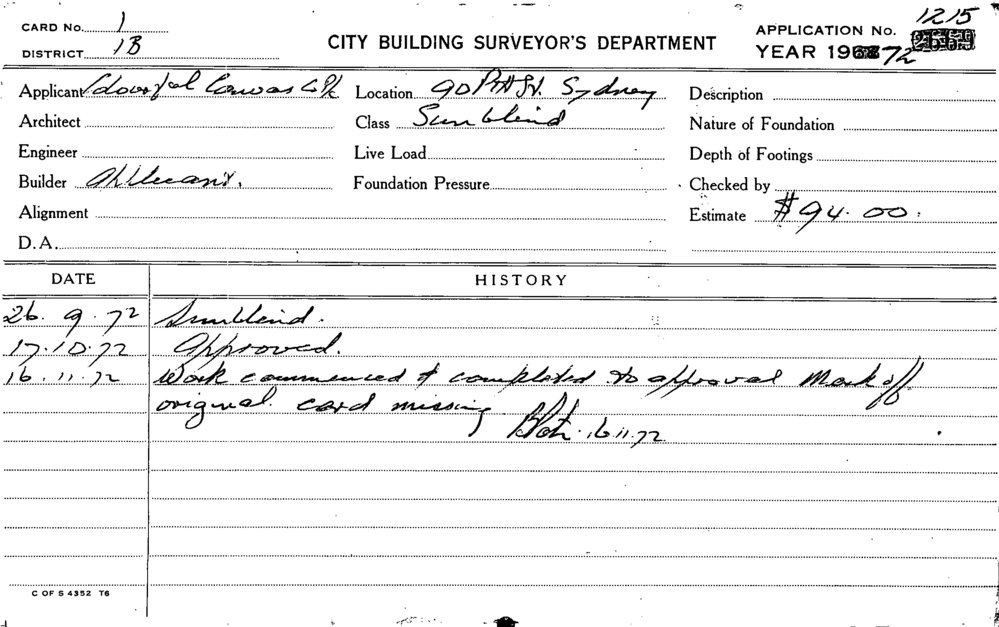 CARD No. 1
DISTRICT 1B
CITY BUILDING SURVEYOR'S DEPARTMENT
1215
APPLICATION No. 2669
YEAR 1968 72
Applicant Canvas Location 90 Pitt St. Sydney Description
Architect Class Sunblind Nature of Foundation
Engineer Live Load Depth of Footings
Builder Foundation Pressure Checked by
Alignment Estimate $94.00.
D.A.
DATE HISTORY
26. 9. 72 Sunblind.
17.10.72 Approved.
16.11.72 Work commenced & completed to approval Mark off
original card missing
16.11.72
C OF S 4352 T6